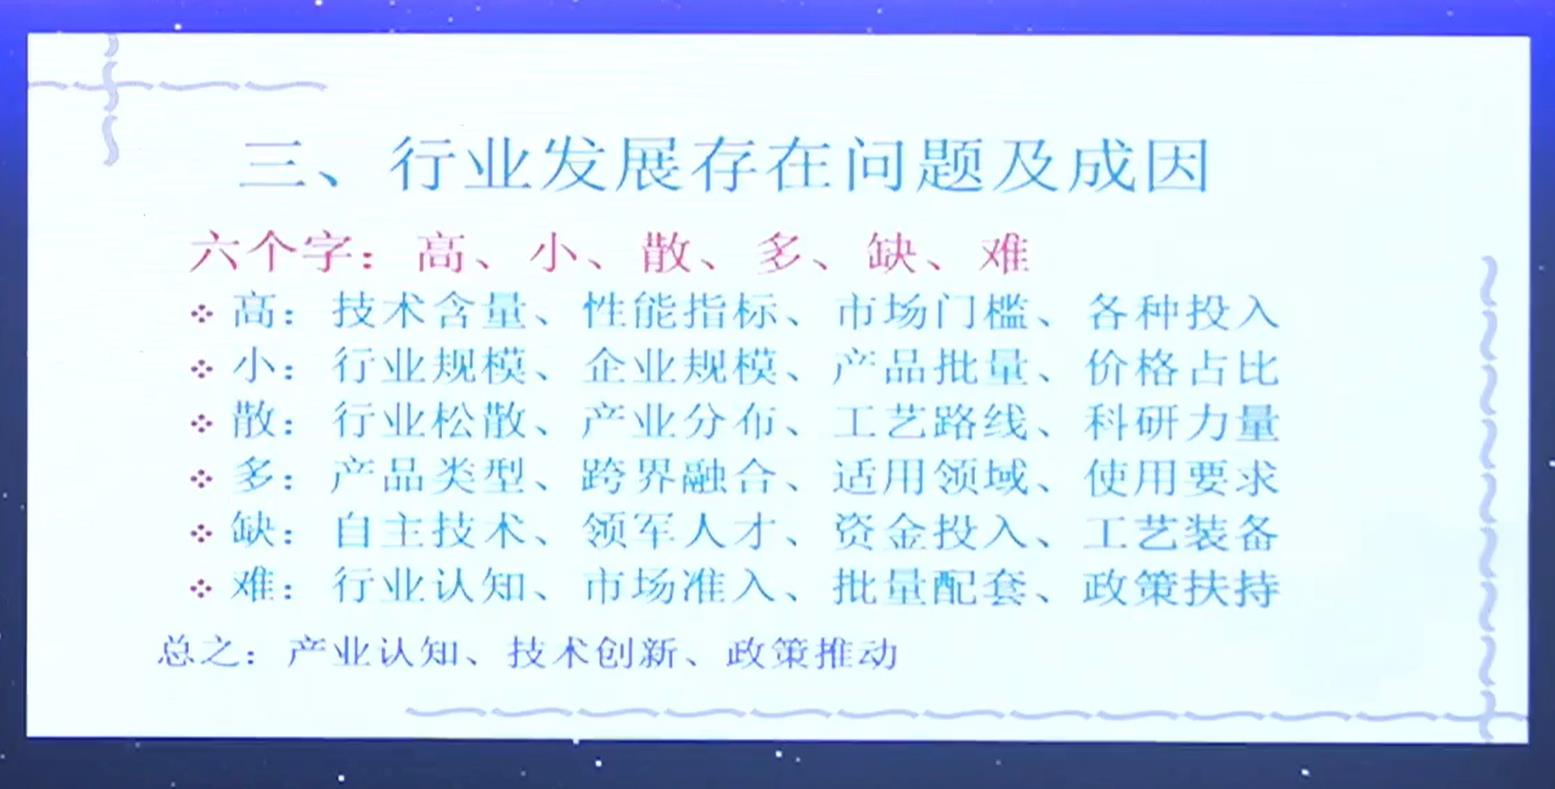 三、行业发展存在问题及成因
六个字：高、小、散、多、缺、难
高：技术含量、性能指标、市场门槛、各种投入
小：行业规模、企业规模、产品批量、价格占比
散：行业松散、产业分布、工艺路线、科研力量
多：产品类型、跨界融合、适用领域、使用要求
缺：自主技术、领军人才、资金投入、工艺装备
难：行业认知、市场准入、批量配套、政策扶持
总之：产业认知、技术创新、政策推动